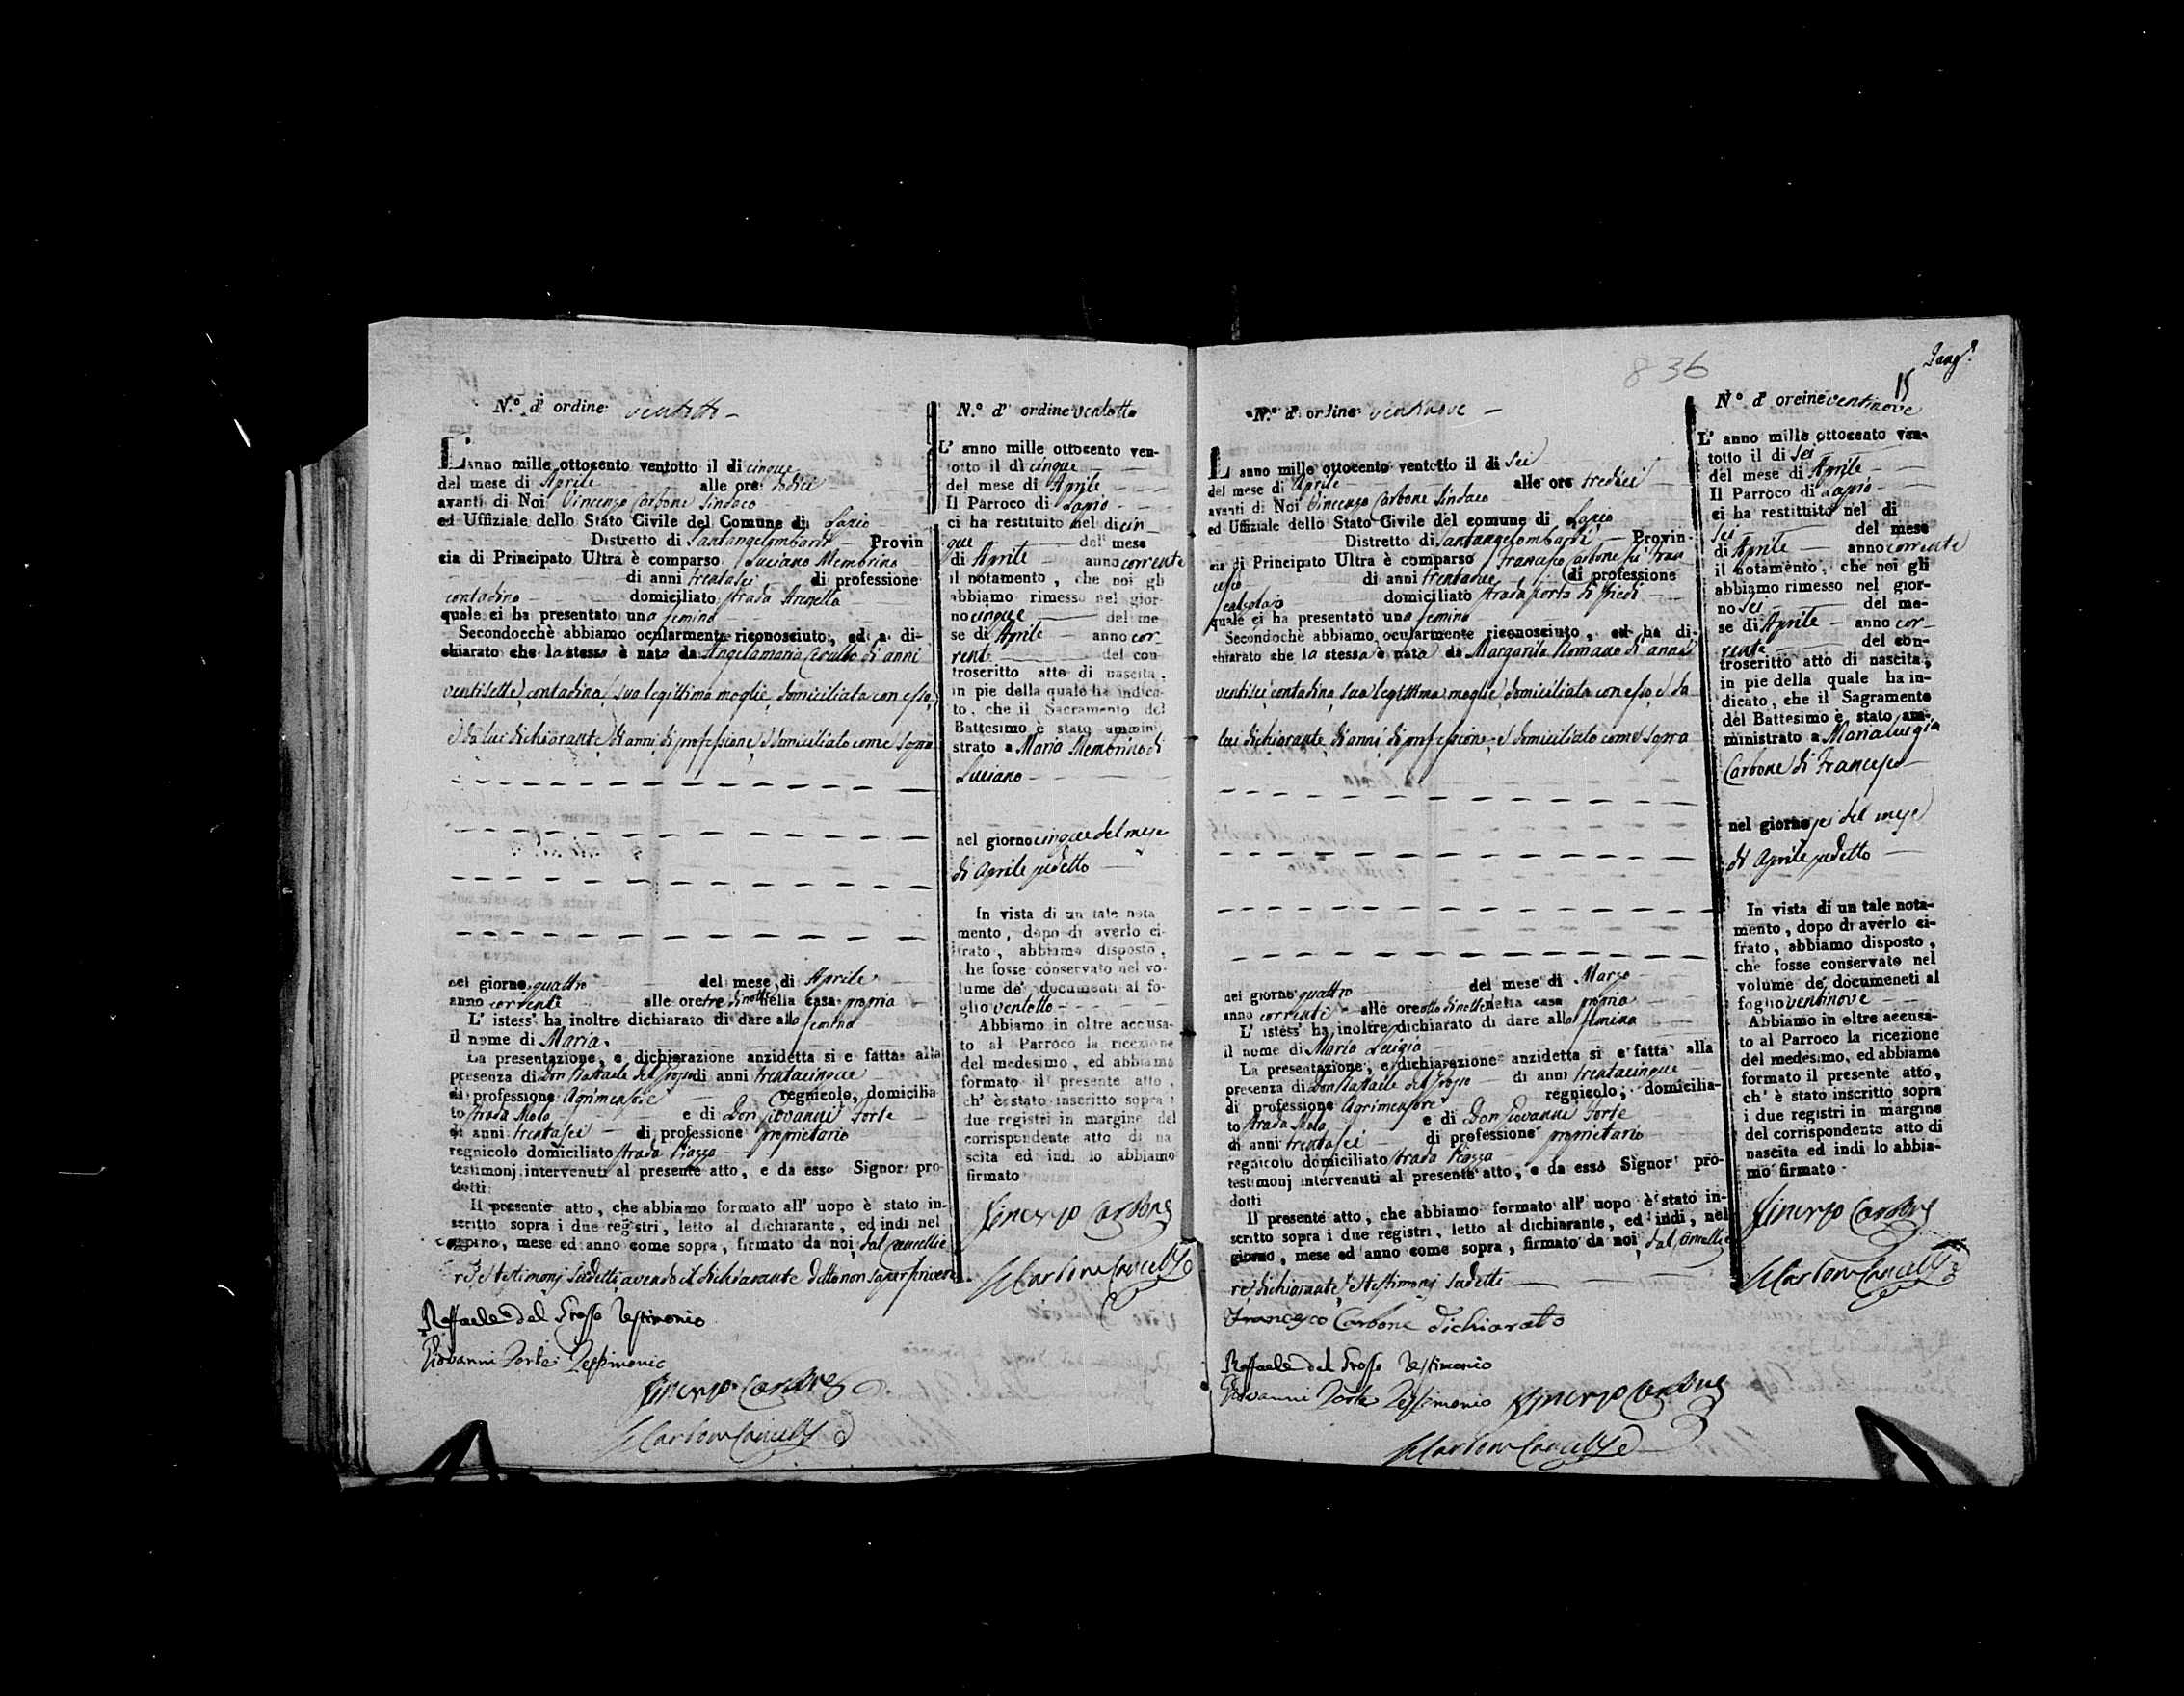 N.º d' ordine ventotto
L'anno mille ottocento ventotto il di cinque
del mese di Aprile alle ore dodici
avanti di Noi Vincenzo Carbone Sindaco
ed Uffiziale dello Stato Civile del Comune di Lapio
Distretto di Santangelombardi Provin
cia di Principato Ultra è comparso Luciano Membrino
di anni trentasei di professione
contadino domiciliato strada Arenella
quale ci ha presentato una femina
Secondocchè abbiamo ocularmente riconosciuto, ed a di-
chiarato che la stessa è nata da Angelamaria di anni
ventisette, contadina, sua legittima moglie, domiciliata con esso,
e da lui dichiarante di anni, di professione, e domiciliato come sopra
nel giorno quattro del mese di Aprile
anno corrente alle ore tre di notte nella casa propria
L' istess' ha inoltre dichiarato di dare alla femina
il nome di Maria.
La presentazione, e dichiarazione anzidetta si e fatta alla
presenza di Don Raffaele del Grosso di anni trentacinque
di professione Agrimensore regnicolo, domicilia
to strada Molo e di Don Giovanni Forte
di anni trentasei di professione proprietario
regnicolo domiciliato strada Piazza
testimonj intervenuti al presente atto, e da esso Signor pro-
dotti.
Il presente atto, che abbiamo formato all' uopo è stato in-
scritto sopra i due registri, letto al dichiarante, ed indi nel
giorno, mese ed anno come sopra, firmato da noi, dal Cancellie
re, e testimonj sudetti, avendo il dichiarante detto non saper scrivere
Raffaele del Grosso Testimonio
Giovanni Forte Testimonio
Vincenzo Carbone
N.º d' ordine ventotto
L' anno mille ottocento ven-
totto il dì cinque
del mese di Aprile
Il Parroco di Lapio
ci ha restituito nel di cin
que del mese
di Aprile anno corrente
il notamento, che noi gli
abbiamo rimesso nel gior-
no cinque del me-
se di Aprile anno cor-
rente del con
troscritto atto di nascita,
in pie della quale ha indica-
to, che il Sacramento del
Battesimo è stato ammini
strato a Maria Membrino di
Luciano
nel giorno cinque del mese
di Aprile sudetto
In vista di un tale nota
mento, dopo di averlo ci-
frato, abbiamo disposto,
che fosse conservato nel vo-
lume de' documenti al fo-
glio ventotto
Abbiamo in oltre accusa-
to al Parroco la ricezione
del medesimo, ed abbiamo
formato il presente atto,
ch' è stato inscritto sopra i
due registri in margine del
corrispondente atto di na
scita ed indi lo abbiamo
firmato
Vincenzo Carbone
836
15
N.º d' ordine ventinove
L' anno mille ottocento ventotto il di sei
del mese di Aprile alle ore tredici
avanti di Noi Vincenzo Carbone Sindaco
ed Uffiziale dello Stato Civile del comune di Lapio
Distretto di Santangelombardi Provin-
cia di Principato Ultra è comparso Francesco Carbone fu Fran
cesco di anni di professione
calzolajo domiciliato strada porta di piedi
quale ci ha presentato una femina
Secondochè abbiamo ocularmente riconosciuto, ed ha di-
chiarato che la stessa è nata da Margarita Romano di anni
ventisei contadina, sua legittima moglie, domiciliata con esso, e da
lui dichiarante, di anni, di professione, e domiciliato come sopra
nel giorno quattro del mese di Marzo
anno corrente alle ore otto di notte nella casa propria
L' istess' ha inoltre dichiarato di dare alla femina
il nome di Maria Luigia
La presentazione, e dichiarazione anzidetta si e fatta alla
presenza di Don Raffaele del Grosso di anni trentacinque
di professione Agrimensore regnicolo, domicilia-
to strada Molo e di Don Giovanni Forte
di anni trentasei di professione proprietario
regnicolo domiciliato strada Piazza
testimonj intervenuti al presente atto, e da esso Signor pro-
dotti
Il presente atto, che abbiamo formato all' uopo è stato in-
scritto sopra i due registri, letto al dichiarante, ed indi, nel
giorno, mese ed anno come sopra, firmato da noi, dal Cancellie
re, dichiarante, e testimonj sudetti
Francesco Carbone dichiarato
Raffaele del Grosso Testimonio
Giovanni Forte Testimonio Vincenzo Carbone
N.º d' oreine ventinove
L' anno mille ottocento ven-
totto il di sei
del mese di Aprile
Il Parroco di Lapio
ci ha restituito nel di
sei del mese
di Aprile anno corrente
il notamento, che noi gli
abbiamo rimesso nel gior-
no sei del me-
se di Aprile anno cor-
rente del con-
troscritto atto di nascita,
in pie della quale ha in-
dicato, che il Sagramento
del Battesimo è stato am-
ministrato a Maria Luigia
Carbone di Francesco
nel giorno sei del mese
di Aprile sudetto
In vista di un tale nota-
mento, dopo di averlo ci-
frato, abbiamo disposto,
che fosse conservato nel
volume de' documeneti al
foglio ventinove
Abbiamo in oltre accusa-
to al Parroco la ricezione
del medesimo, ed abbiamo
formato il presente atto,
ch' è stato inscritto sopra
i due registri in margine
del corrispondente atto di
nascita ed indi lo abbia-
mo firmato
Vincenzo Carbone